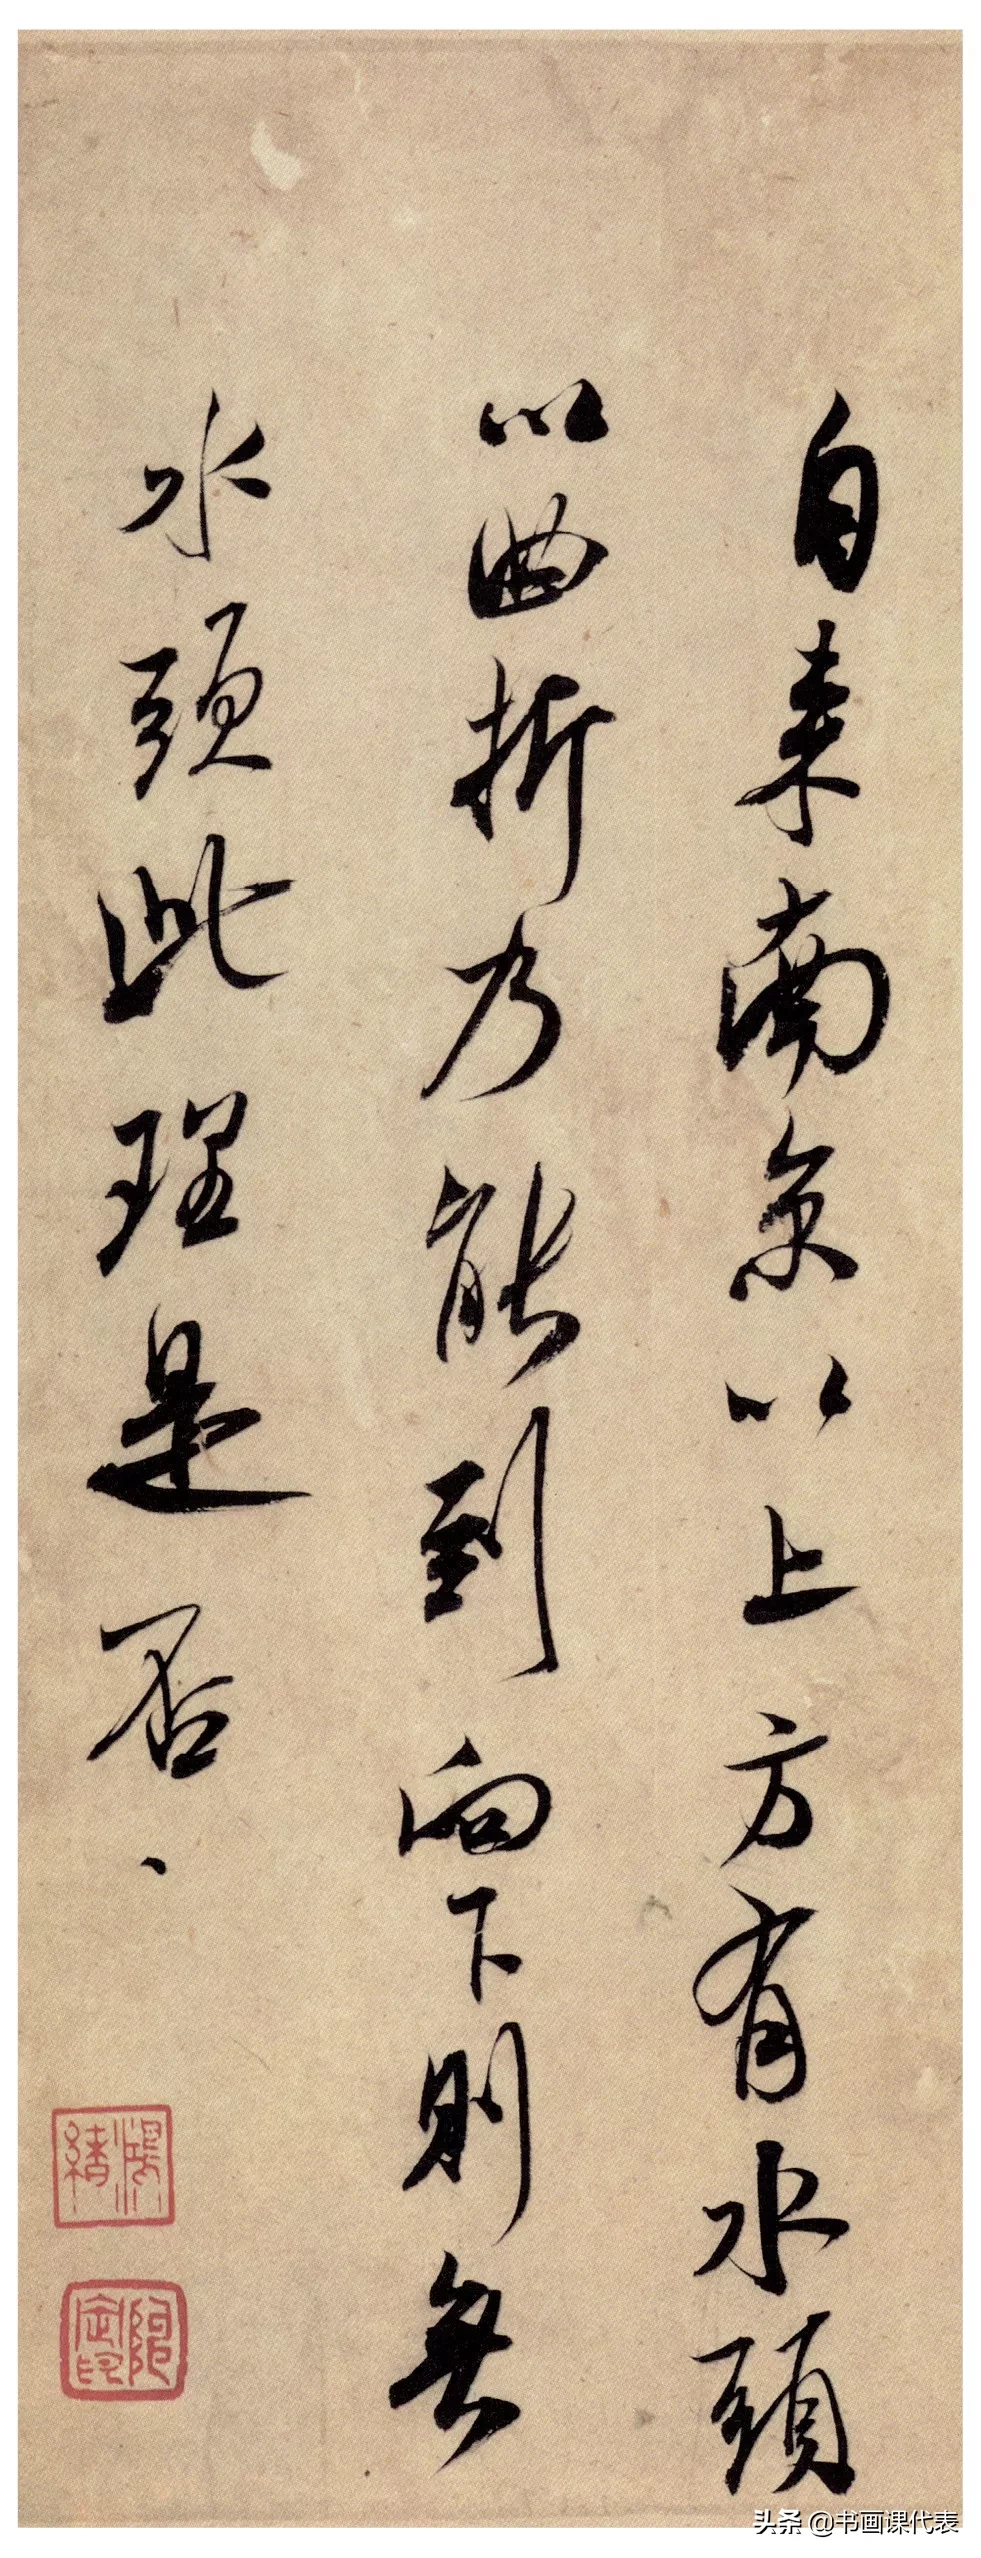 自来南京以上方有水頭
以曲折乃能到向下則無
水頭此理是否、
頭条 @书画课代表